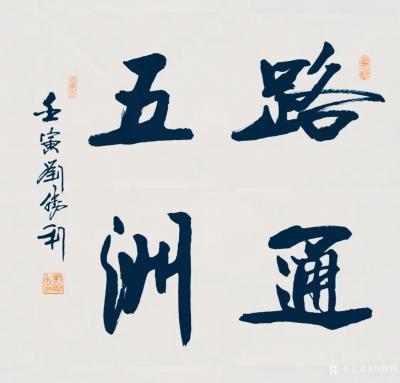 路通
五洲
壬寅劉勝利